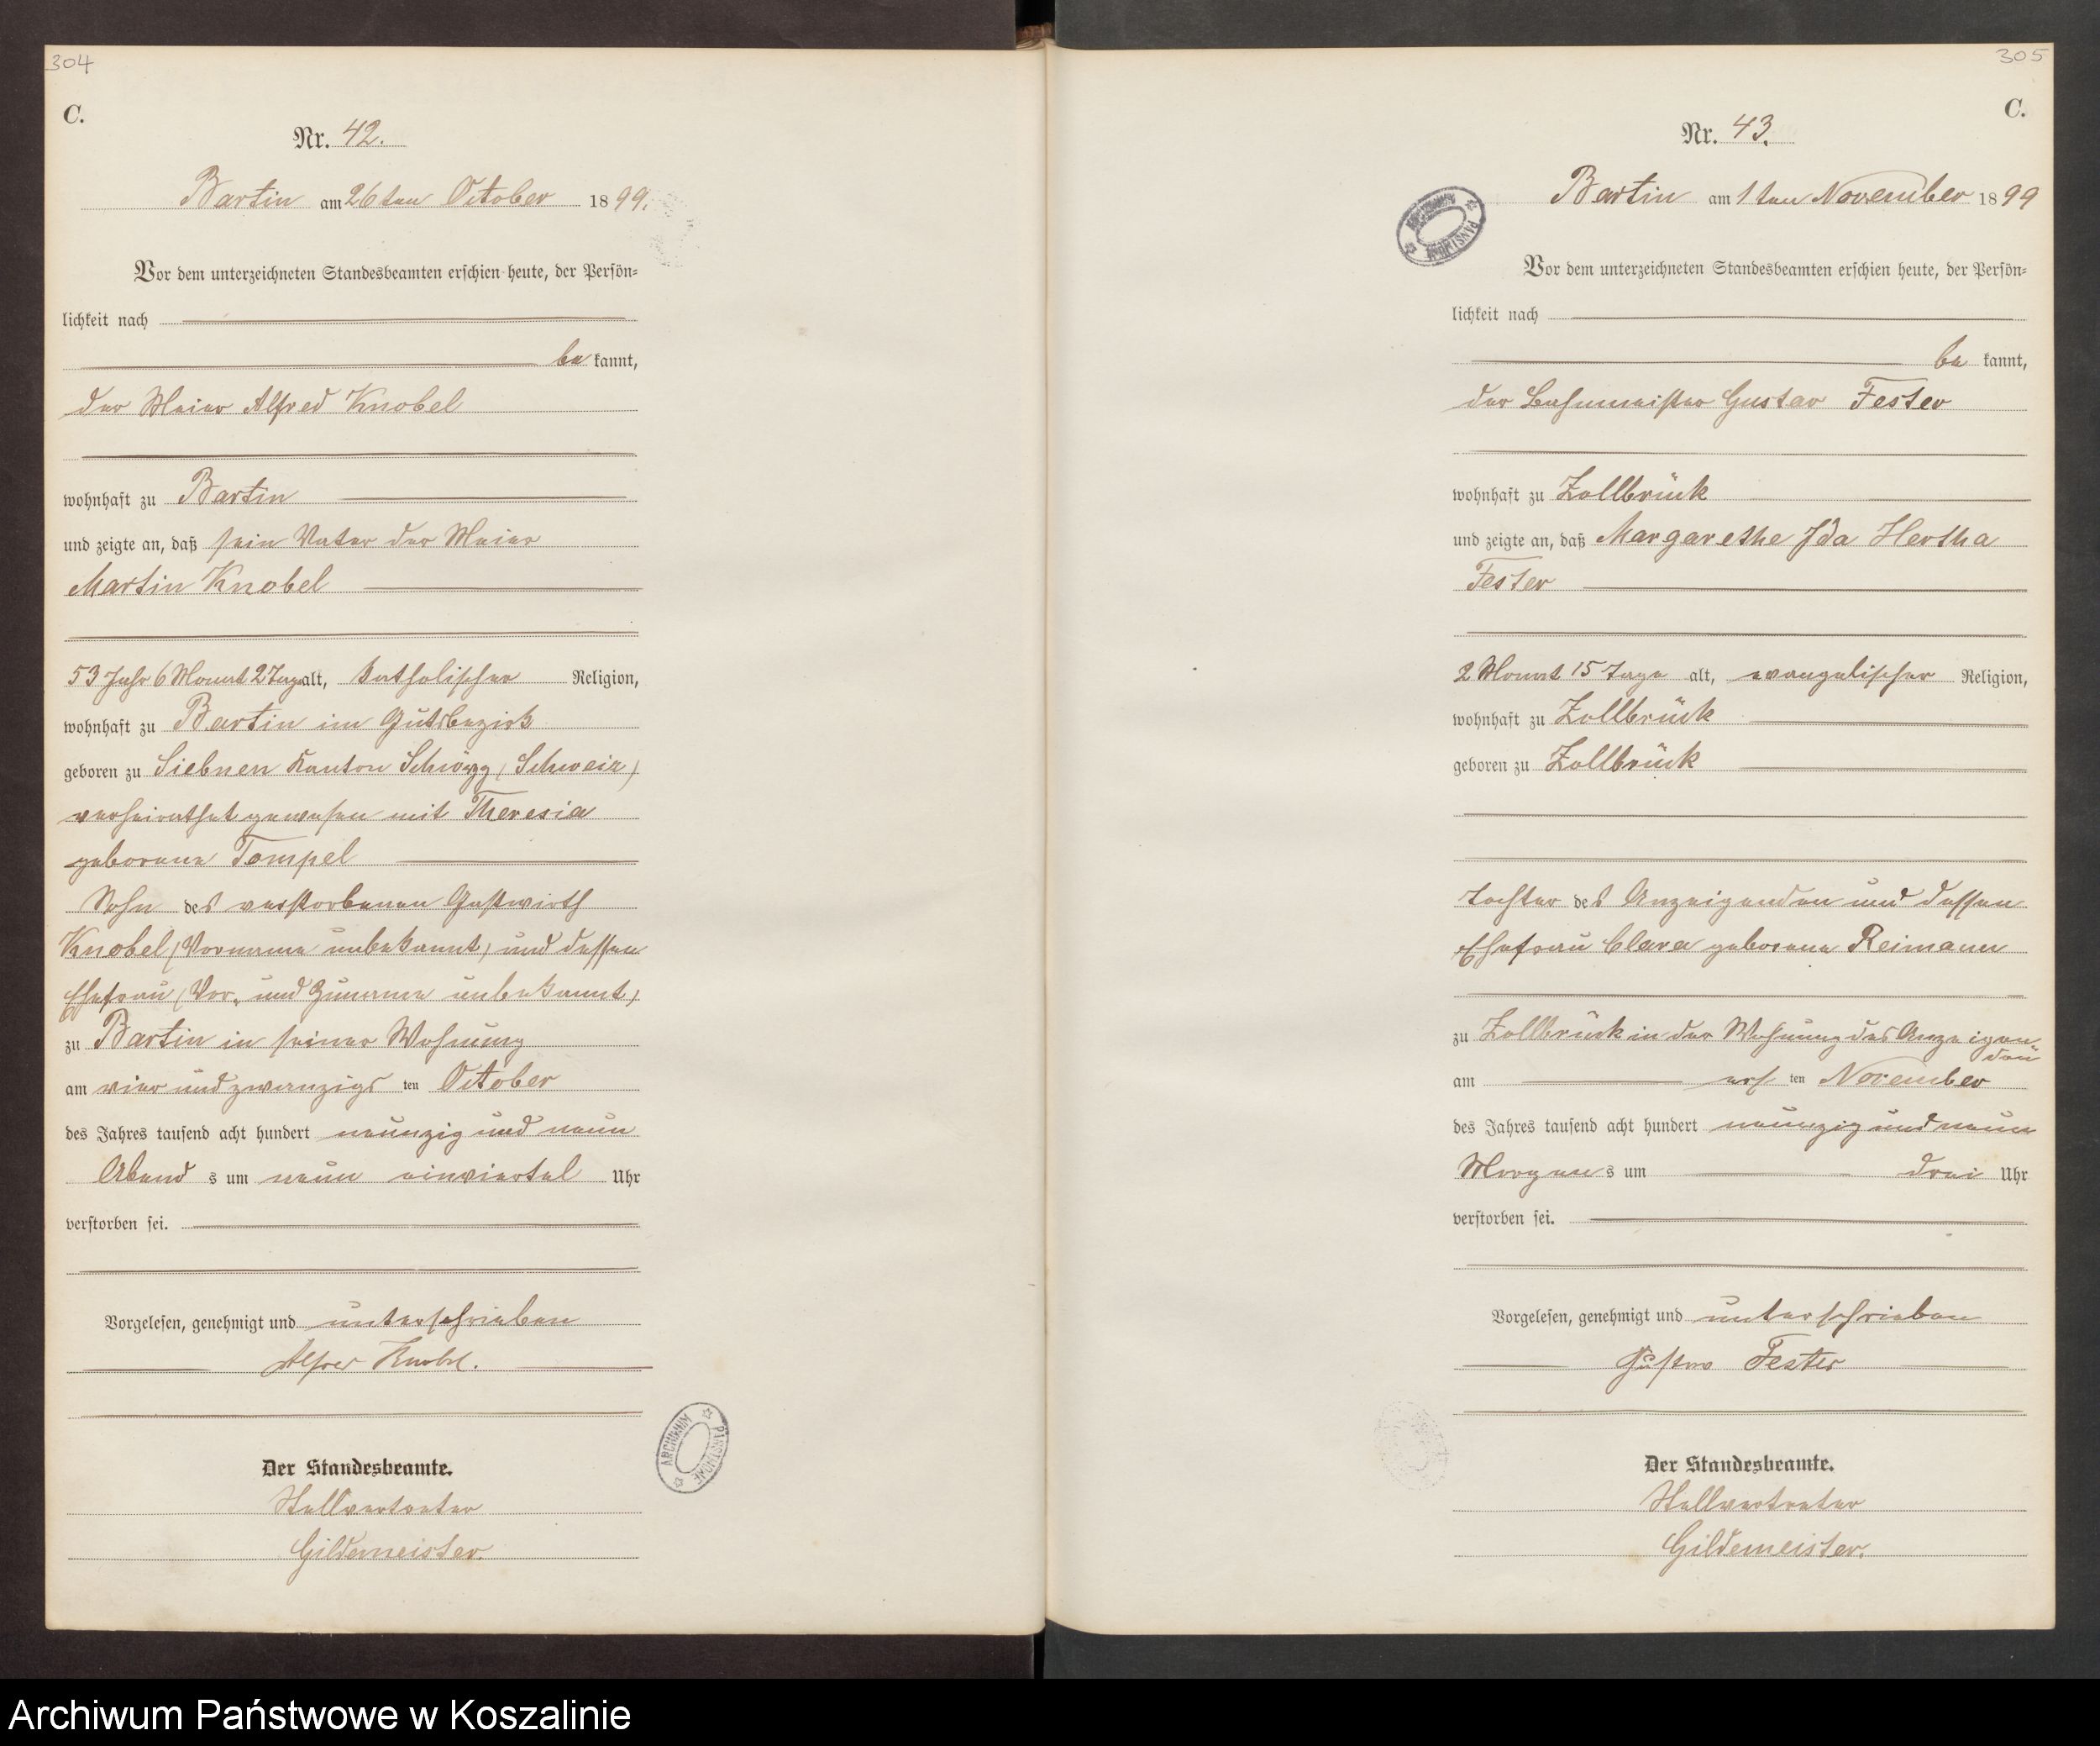 304
C.
Nr. 42.
Bartin am 26ten October 1899.
Vor dem unterzeichneten Standesbeamten erschien heute, der Persön=
lichkeit nach
be kannt,
der Meier Alfred Knobel
wohnhaft zu Bartin
und zeigte an, daß sein Vater der Meier
Martin Knobel
53 Jahr 6 Monat 2 Tage alt, katholischer Religion,
wohnhaft zu Bartin im Gutsbezirk
geboren zu Siebnen Kanton (Schweiz)
verheirathet gewesen mit Theresia
geborene Tempel
Sohn des verstorbenen Gastwirth
Knobel (Vorname unbekannt) und dessen
Ehefrau (Vor- und Zuname unbekannt)
zu Bartin in seiner Wohnung
am vier und zwanzigs ten October
des Jahres tausend acht hundert neunzig und neun
Abend s um neun einviertel Uhr
verstorben sei.
Vorgelesen, genehmigt und unterschrieben
Alfred Knobel.
Der Standesbeamte.
Stellvertreter
Gildemeister.
ARCHIWUM PAŃSTWOWE
305
C.
Nr. 43.
Bartin am 1ten November 1899
Vor dem unterzeichneten Standesbeamten erschien heute, der Persön=
lichkeit nach
be kannt,
der Bahnmeister Gustav Fester
wohnhaft zu Zollbrück
und zeigte an, daß Margarethe Ida Hertha
Fester
2 Monat 15 Tage alt, evangelischer Religion,
wohnhaft zu Zollbrück
geboren zu Zollbrück
Tochter des Anzeigenden und dessen
Ehefrau Clara geborene Reimann
zu Zollbrück in der Wohnung des Anzeigen
den
am ers ten November
des Jahres tausend acht hundert neunzig und neun
Morgen s um drei Uhr
verstorben sei.
Vorgelesen, genehmigt und unterschrieben
Gustav Fester
Der Standesbeamte.
Stellvertreter
Gildemeister.
ARCHIWUM PAŃSTWOWE
Archiwum Państwowe w Koszalinie